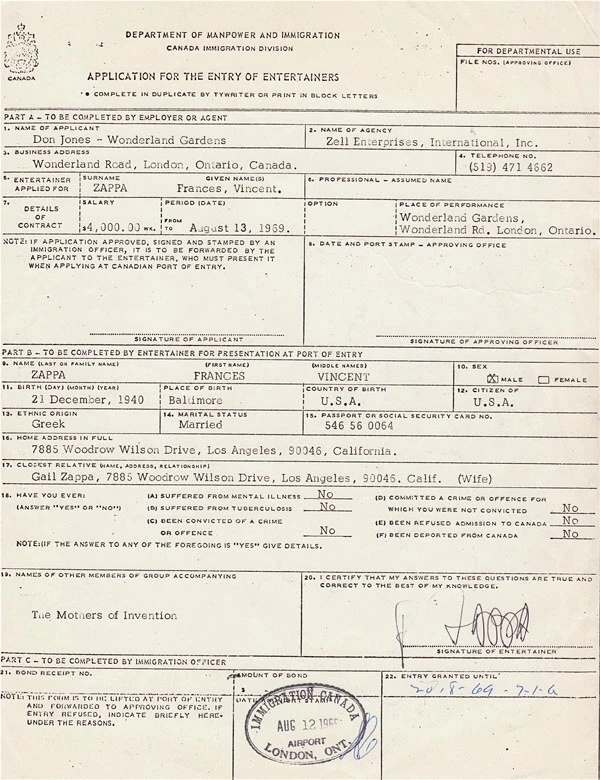 DEPARTMENT OF MANPOWER AND IMMIGRATION
CANADA IMMIGRATION DIVISION
CANADA
FOR DEPARTMENTAL USE
FILE NOS. (APPROVING OFFICE)
APPLICATION FOR THE ENTRY OF ENTERTAINERS
• COMPLETE IN DUPLICATE BY TYWRITER OR PRINT IN BLOCK LETTERS
PART A - TO BE COMPLETED BY EMPLOYER OR AGENT
1. NAME OF APPLICANT 2. NAME OF AGENCY
Don Jones - Wonderland Gardens Zell Enterprises, International, Inc.
3. BUSINESS ADDRESS 4. TELEPHONE NO.
Wonderland Road, London, Ontario, Canada. (519) 471 4662
5. ENTERTAINER APPLIED FOR SURNAME GIVEN NAME(S) 6. PROFESSIONAL - ASSUMED NAME
ZAPPA Frances, Vincent.
7. DETAILS OF CONTRACT SALARY PERIOD (DATE) OPTION PLACE OF PERFORMANCE
$4,000.00 WK. FROM TO August 13, 1969. Wonderland Gardens,
Wonderland Rd. London, Ontario.
NOTE: IF APPLICATION APPROVED, SIGNED AND STAMPED BY AN
IMMIGRATION OFFICER, IT IS TO BE FORWARDED BY THE
APPLICANT TO THE ENTERTAINER, WHO MUST PRESENT IT
WHEN APPLYING AT CANADIAN PORT OF ENTRY.
8. DATE AND PORT STAMP - APPROVING OFFICE
SIGNATURE OF APPLICANT SIGNATURE OF APPROVING OFFICER
PART B - TO BE COMPLETED BY ENTERTAINER FOR PRESENTATION AT PORT OF ENTRY
9. NAME (LAST OR FAMILY NAME) (FIRST NAME) (MIDDLE NAMES) 10. SEX
ZAPPA FRANCES VINCENT X MALE FEMALE
11. BIRTH (DAY) (MONTH) (YEAR) PLACE OF BIRTH COUNTRY OF BIRTH 12. CITIZEN OF
21 December, 1940 Baltimore U.S.A. U.S.A.
13. ETHNIC ORIGIN 14. MARITAL STATUS 15. PASSPORT OR SOCIAL SECURITY CARD NO.
Greek Married 546 56 0064
16. HOME ADDRESS IN FULL
7885 Woodrow Wilson Drive, Los Angeles, 90046, California.
17. CLOSEST RELATIVE (NAME, ADDRESS, RELATIONSHIP)
Gail Zappa, 7885 Woodrow Wilson Drive, Los Angeles, 90046. Calif. (Wife)
18. HAVE YOU EVER: (A) SUFFERED FROM MENTAL ILLNESS No (D) COMMITTED A CRIME OR OFFENCE FOR
(ANSWER "YES" OR "NO") (B) SUFFERED FROM TUBERCULOSIS No WHICH YOU WERE NOT CONVICTED No
(C) BEEN CONVICTED OF A CRIME (E) BEEN REFUSED ADMISSION TO CANADA No
OR OFFENCE No (F) BEEN DEPORTED FROM CANADA No
NOTE:(IF THE ANSWER TO ANY OF THE FOREGOING IS "YES" GIVE DETAILS.
19. NAMES OF OTHER MEMBERS OF GROUP ACCOMPANYING 20. I CERTIFY THAT MY ANSWERS TO THESE QUESTIONS ARE TRUE AND
CORRECT TO THE BEST OF MY KNOWLEDGE.
The Mothers of Invention
SIGNATURE OF ENTERTAINER
PART C - TO BE COMPLETED BY IMMIGRATION OFFICER
21. BOND RECEIPT NO. AMOUNT OF BOND 22. ENTRY GRANTED UNTIL
$
NOTE: THIS FORM IS TO BE LIFTED AT PORT OF ENTRY
AND FORWARDED TO APPROVING OFFICE. IF
ENTRY REFUSED, INDICATE BRIEFLY HERE-
UNDER THE REASONS.
IMMIGRATION CANADA
AUG 12 1969
AIRPORT
LONDON, ONT.